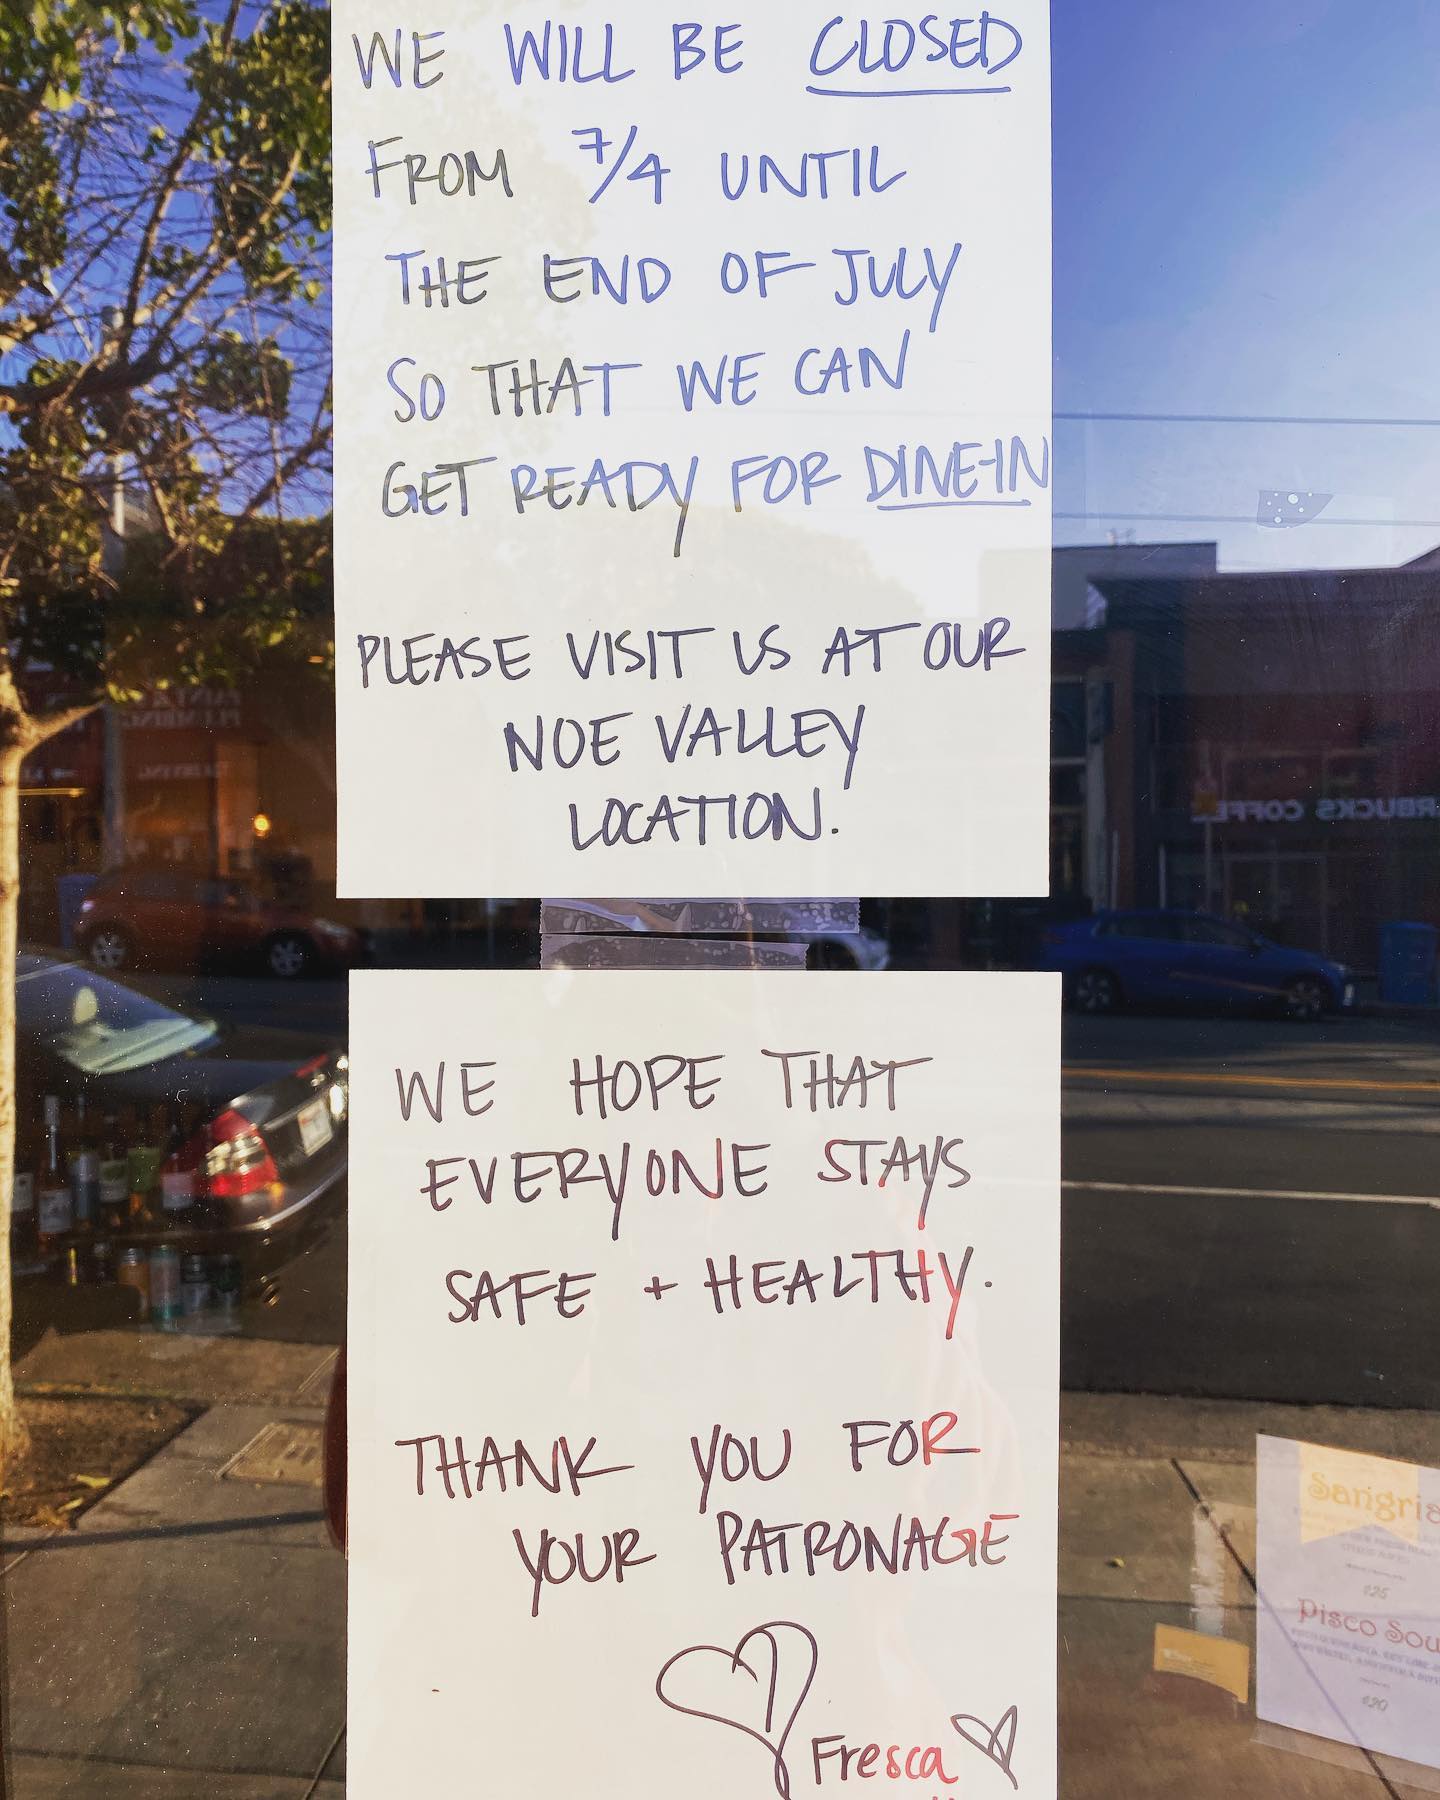 WE WILL BE CLOSED
FROM 7/4 UNTIL
THE END OF JULY
SO THAT WE CAN
GET READY FOR DINE-IN
PLEASE VISIT US AT OUR
NOE VALLEY
LOCATION.
WE HOPE THAT
EVERYONE STAYS
SAFE + HEALTHY.
THANK YOU FOR
YOUR PATRONAGE
Fresca
PLUMBING
RBUCKS COFFE
Sangria
$25
Pisco Sou
$20